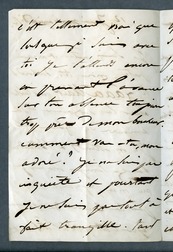 c'est tellement vrai que
lorsque je suis avec
toi je souffre encore
en pensant
sur ton absence toujours
trop près de mon bonheur
comment vas-tu, mon
adoré? je ne suis pas
inquiète et pourtant
je ne suis pas tout à
fait tranquille.